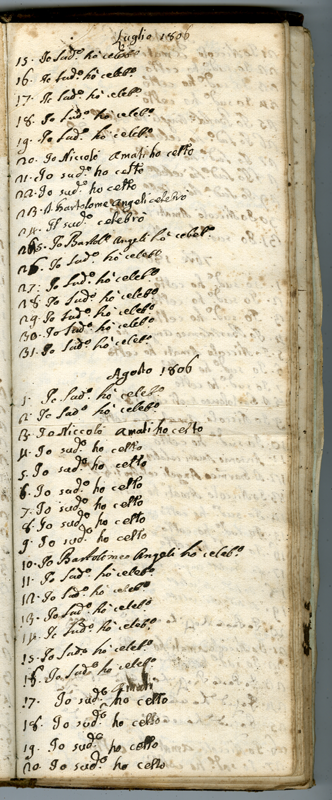 Luglio 1806
15. Io Sud.º hò celeb.º
16. Io Sud.º hò celeb.º
17. Io Sud.º hò celeb.º
18. Io Sud.º hò celeb.º
19. Io Sud.º hò celeb.º
20. Io Niccolò Amati ho cełto
21. Io sud.º ho cełto
22. Io sud.º ho cełto
23. Bartolome Angeli celebrò
24. Il sud.º celebrò
25. Io Bartol.º Angeli hò celeb.º
26. Io Sud.º hò celeb.º
27. Io Sud.º hò celeb.º
28. Io Sud.º hò celeb.º
29. Io Sud.º hò celeb.º
30. Io Sud.º hò celeb.º
31. Io Sud.º hò celeb.º
Agosto 1806
1. Io Sud.º hò celeb.º
2. Io Sud.º hò celeb.º
3. Io Niccolò Amati ho cełto
4. Io sud.º ho cełto
5. Io sud.º ho cełto
6. Io sud.º ho cełto
7. Io sud.º ho cełto
8. Io sud.º ho cełto
9. Io sud.º ho cełto
10. Io Bartolomeo Angeli hò celeb.º
11. Io Sud.º hò celeb.º
12. Io Sud.º hò celeb.º
13. Io Sud.º hò celeb.º
14. Io Sud.º hò celeb.º
15. Io Sud.º hò celeb.º
16. Io Sud.º hò celeb.º
17. Io sud.º Amati ho cełto
18. Io sud.º ho cełto
19. Io sud.º ho cełto
20. Io sud.º ho cełto